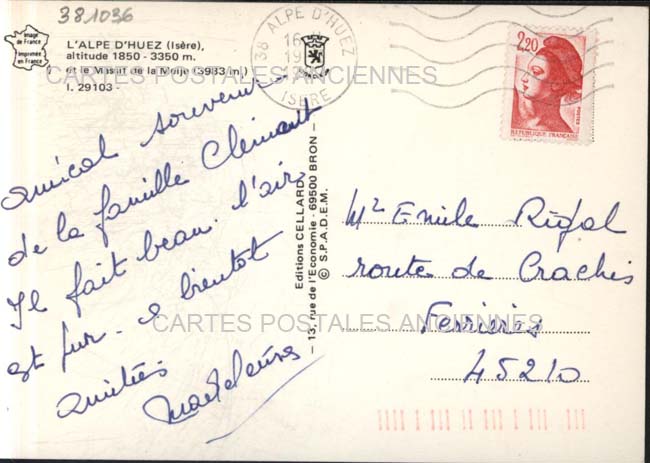 381036
Image
de France
Imprimée
en France
L'ALPE D'HUEZ (Isère),
altitude 1850 - 3350 m.
et le Massif de la Meije (3983 m.)
I. 29103 -
38 ALPE D'HUEZ
ISERE
2,20
POSTES
REPUBLIQUE FRANÇAISE
CARTES POSTALES ANCIENNES
amical souvenir
de la famille Clément
Il fait beau. l'air
est pur - à bientot
amitiés
Editions CELLARD
13, rue de l'Economie - 69500 BRON -
© S.P.A.D.E.M.
Mr Emile Rigal
route de Crachis
Ferrières
45210
CARTES POSTALES ANCIENNES